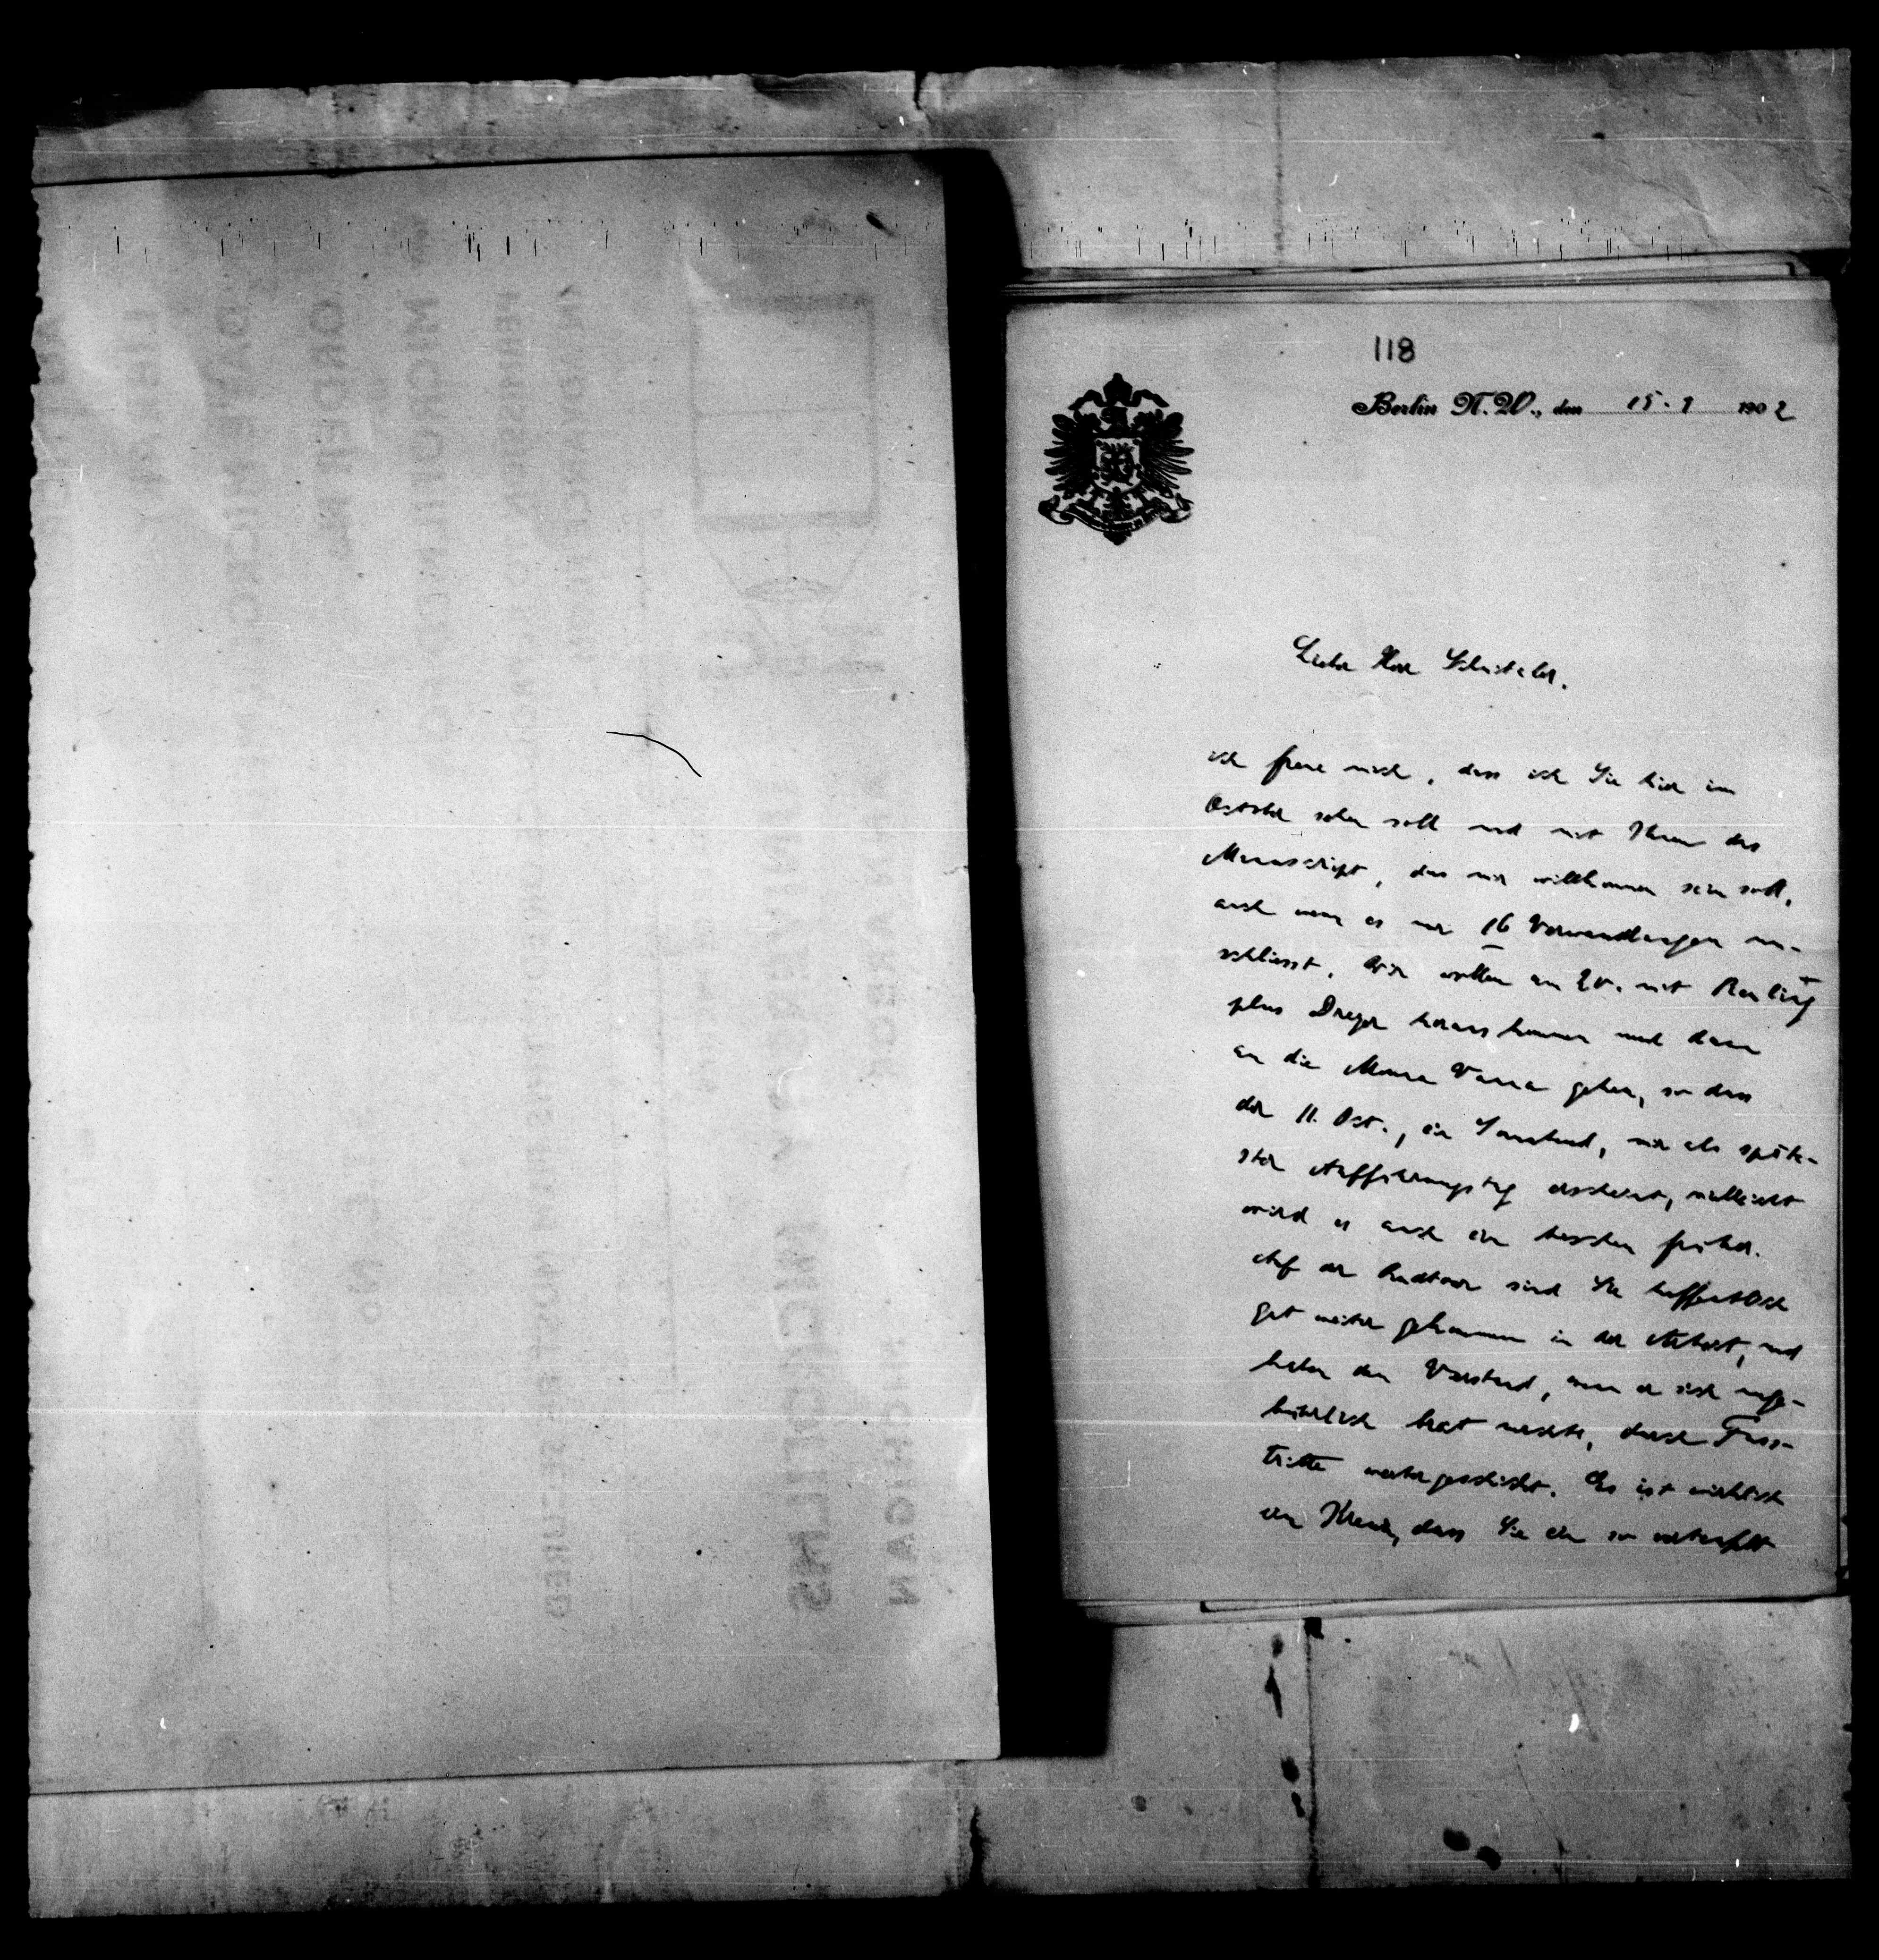 118
Berlin N.W., den 15. 9 1902
Lieber Herr Schnitzler.
ich freue mich, dass ich Sie hier im
October sehen soll und mit Ihnen das
Manuscript, das mir willkommen sein soll,
auch wenn es nur 16 Verwandlungen um-
schliesst. Wir wollen am 20. mit
plus Dreyer herauskommen und dann
an die Monna Vanna gehen, so dass
der 11. Oct., ein Sonnabend, mir als späte-
ster Aufführungstag erscheint, vielleicht
wird es auch ein bisschen früher.
Auf der Radtour sind Sie hoffentlich
gut weiter gekommen in der Arbeit, und
haben den Verstand, wenn er sich unge-
bührlich breit machte, durch Fuss-
tritte Es ist wirklich
ein dass Sie ein so